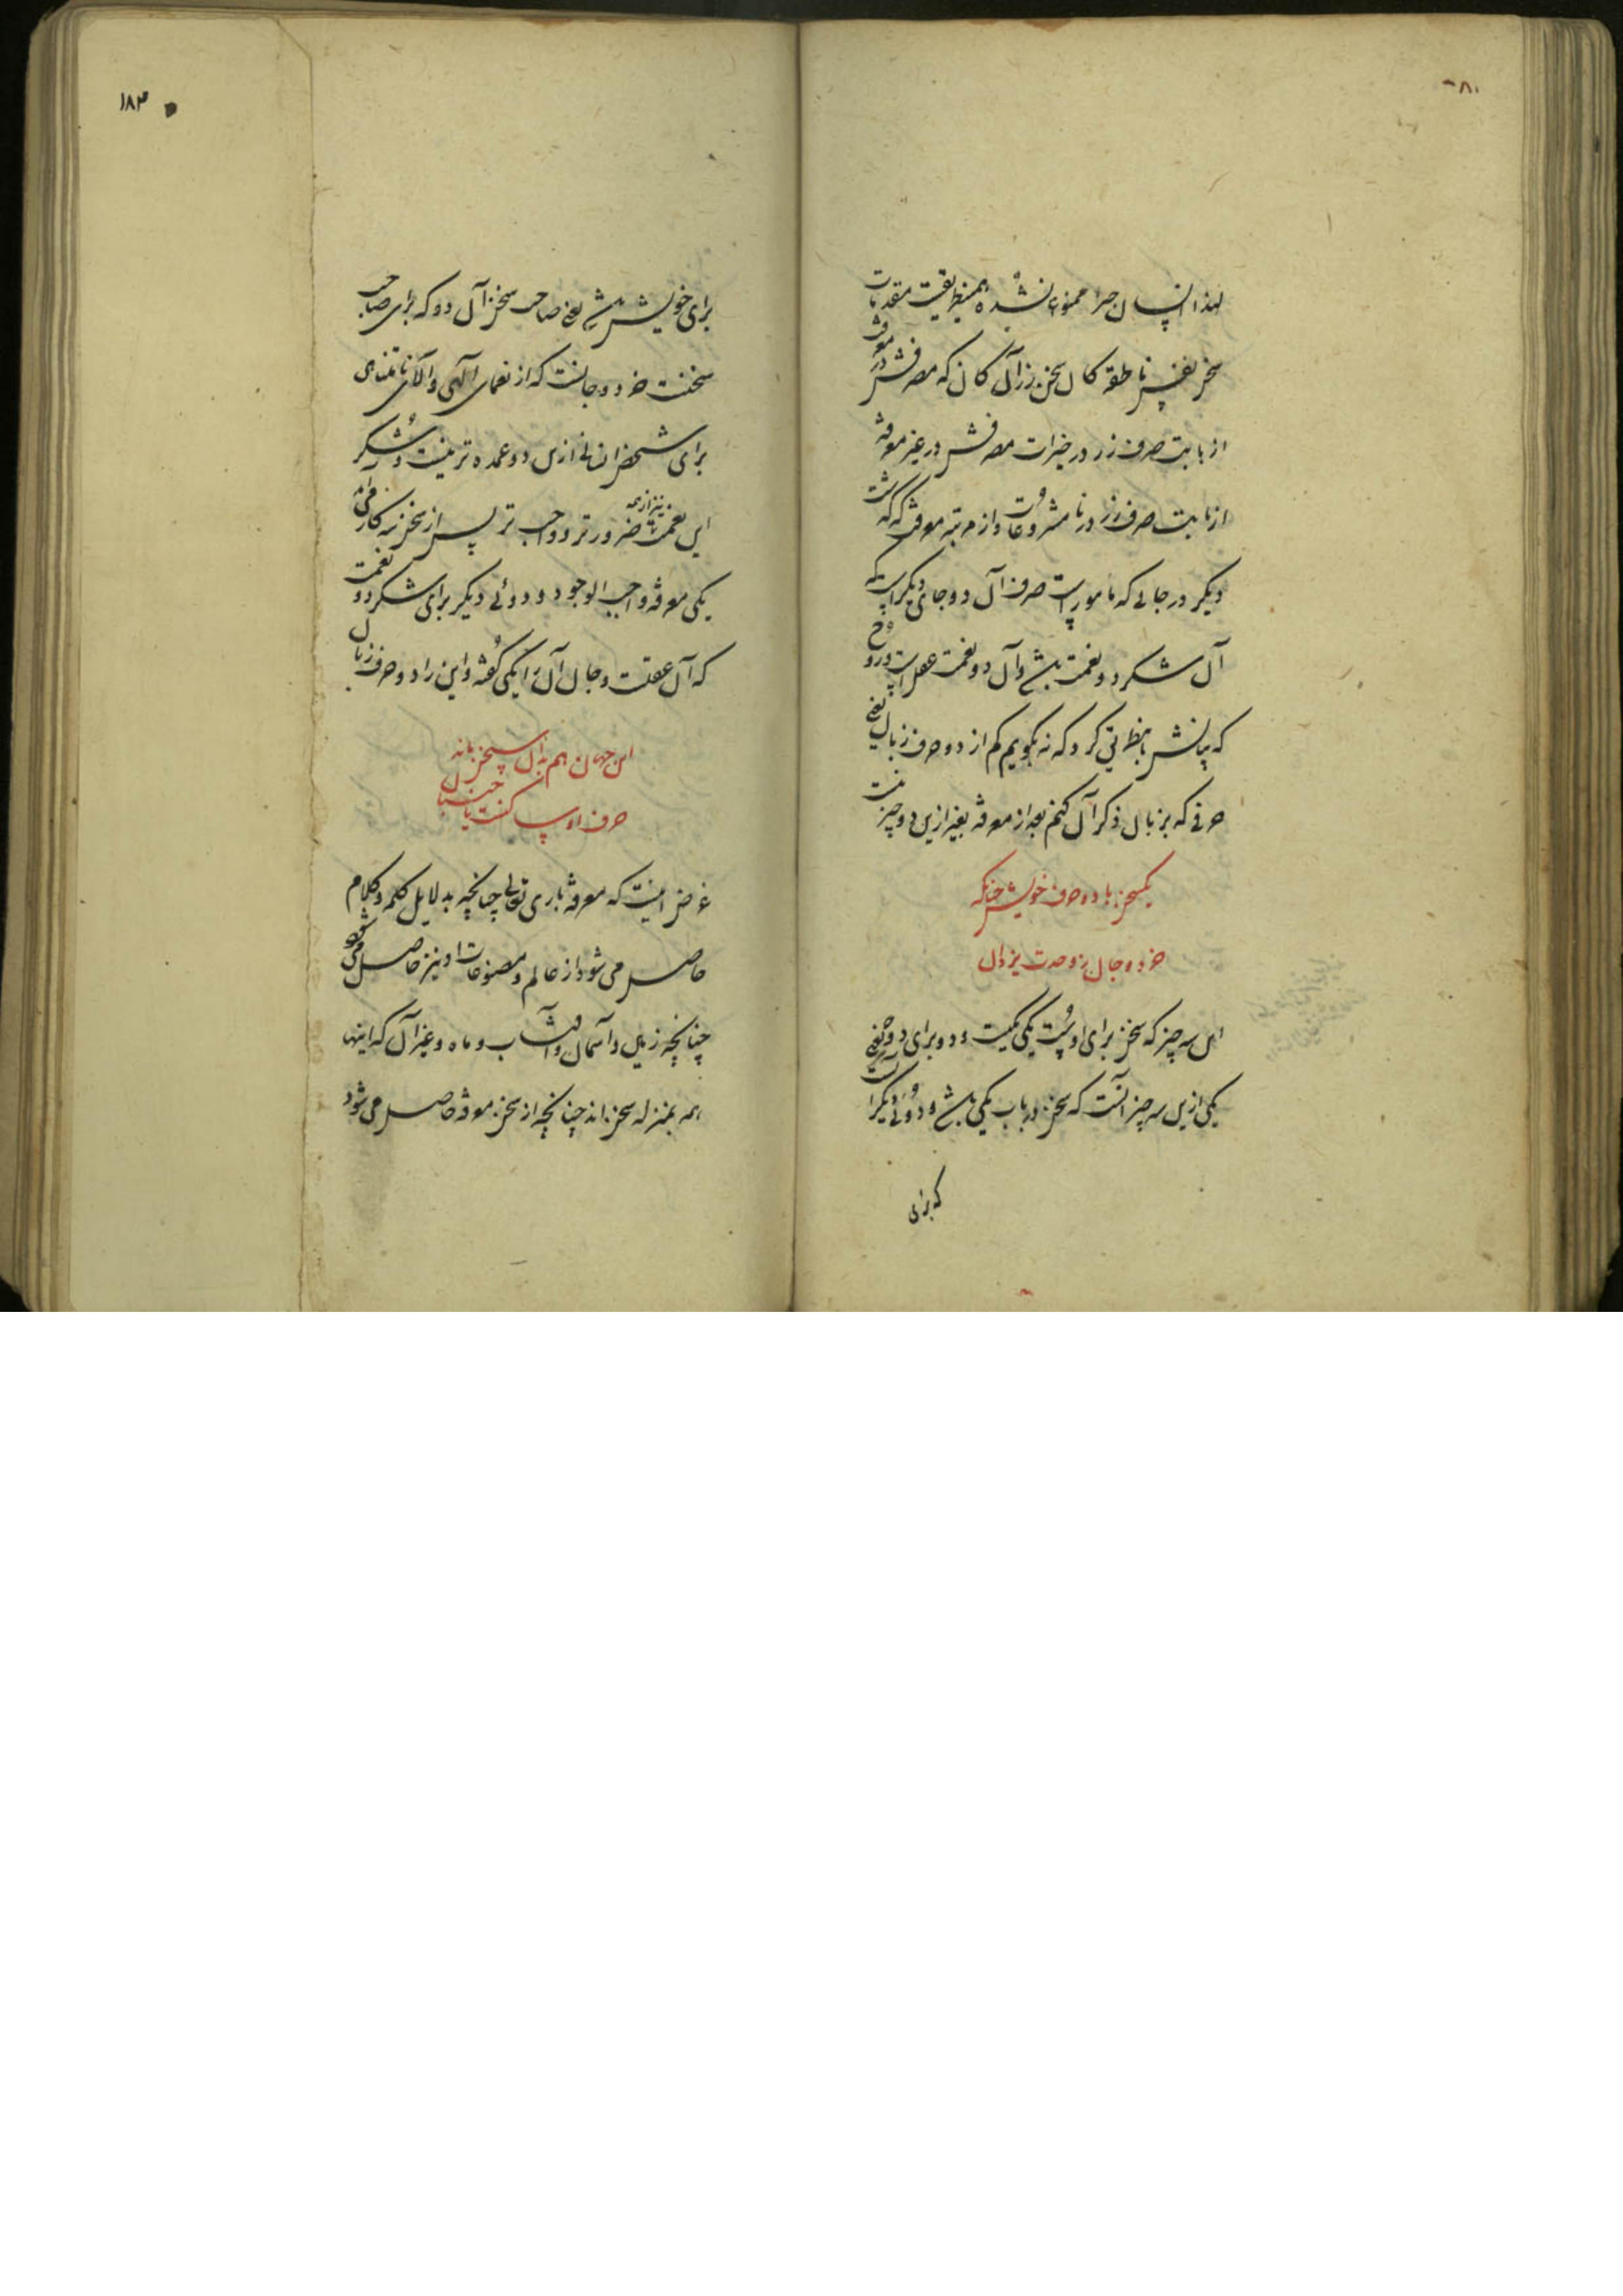 لهذا انسان چرا ممنوع نشده همینطریقست مقدمات
سخن نفس ناطقه کان سخن زر آن کان که مصرفش در معرفت
از بابت صرف زر در خیرات مصرفش در غیر معرفت
از بابت صرف زر در نامشروعات و از مرتبه معرفت که گذشت
دیگر در جائی که مامور است صرف آن دو جای دیگر است یکی
آن شکر دو نعمت باشد و آن دو نعمت عقل است و روح
که بیانش باید کرد که نه بگویم کم از دو حرف زبان یعنی
حرفی که بزبان ذکر آن کنم بعد از معرفت بغیر ازین دو چیز نیست
یکسخن با دو حرف خویش چنانکه
خرد و جان ز وحدت یزدان
این سه چیز که سخن برای اوست یکی یکیست و دو برای دو یعنی
یکی ازین سه چیز آنست که سخن در باب یکی باشد و دوئی دیگر آنست
که برای
۱۸۳
برای خویش باشد یعنی صاحب سخن آن دو که برای صاحب
سخنست خرد و جانست که از نعمای الهی و آلای نامتناهی
برای شخص انسانی ازین دو عمده تر نیست و شکر
این نعمت نیز از همه ضرورتر و واجب تر پس از سخن سه کار می‌آید
یکی معرفت واجب الوجود و دوئی دیگر برای شکر دو نعمت
که آن عقلست و جان آن را یکی گفته و این را دو حرف زبان
این جهان هم بدان سخن ماند
حرف او ساکنست یا جنبان
غرض اینست که معرفت باری تعالی چنانچه بدلایل کلمه و کلام
حاصل می شود از عالم و مصنوعات او نیز حاصل می شود
چنانچه زمین و آسمان و آفتاب و ماه و غیر آن که اینها
همه بمنزله سخن اند چنانچه از سخن معرفت حاصل می شود